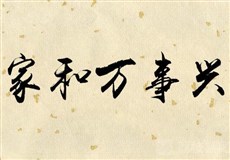 家和万事兴